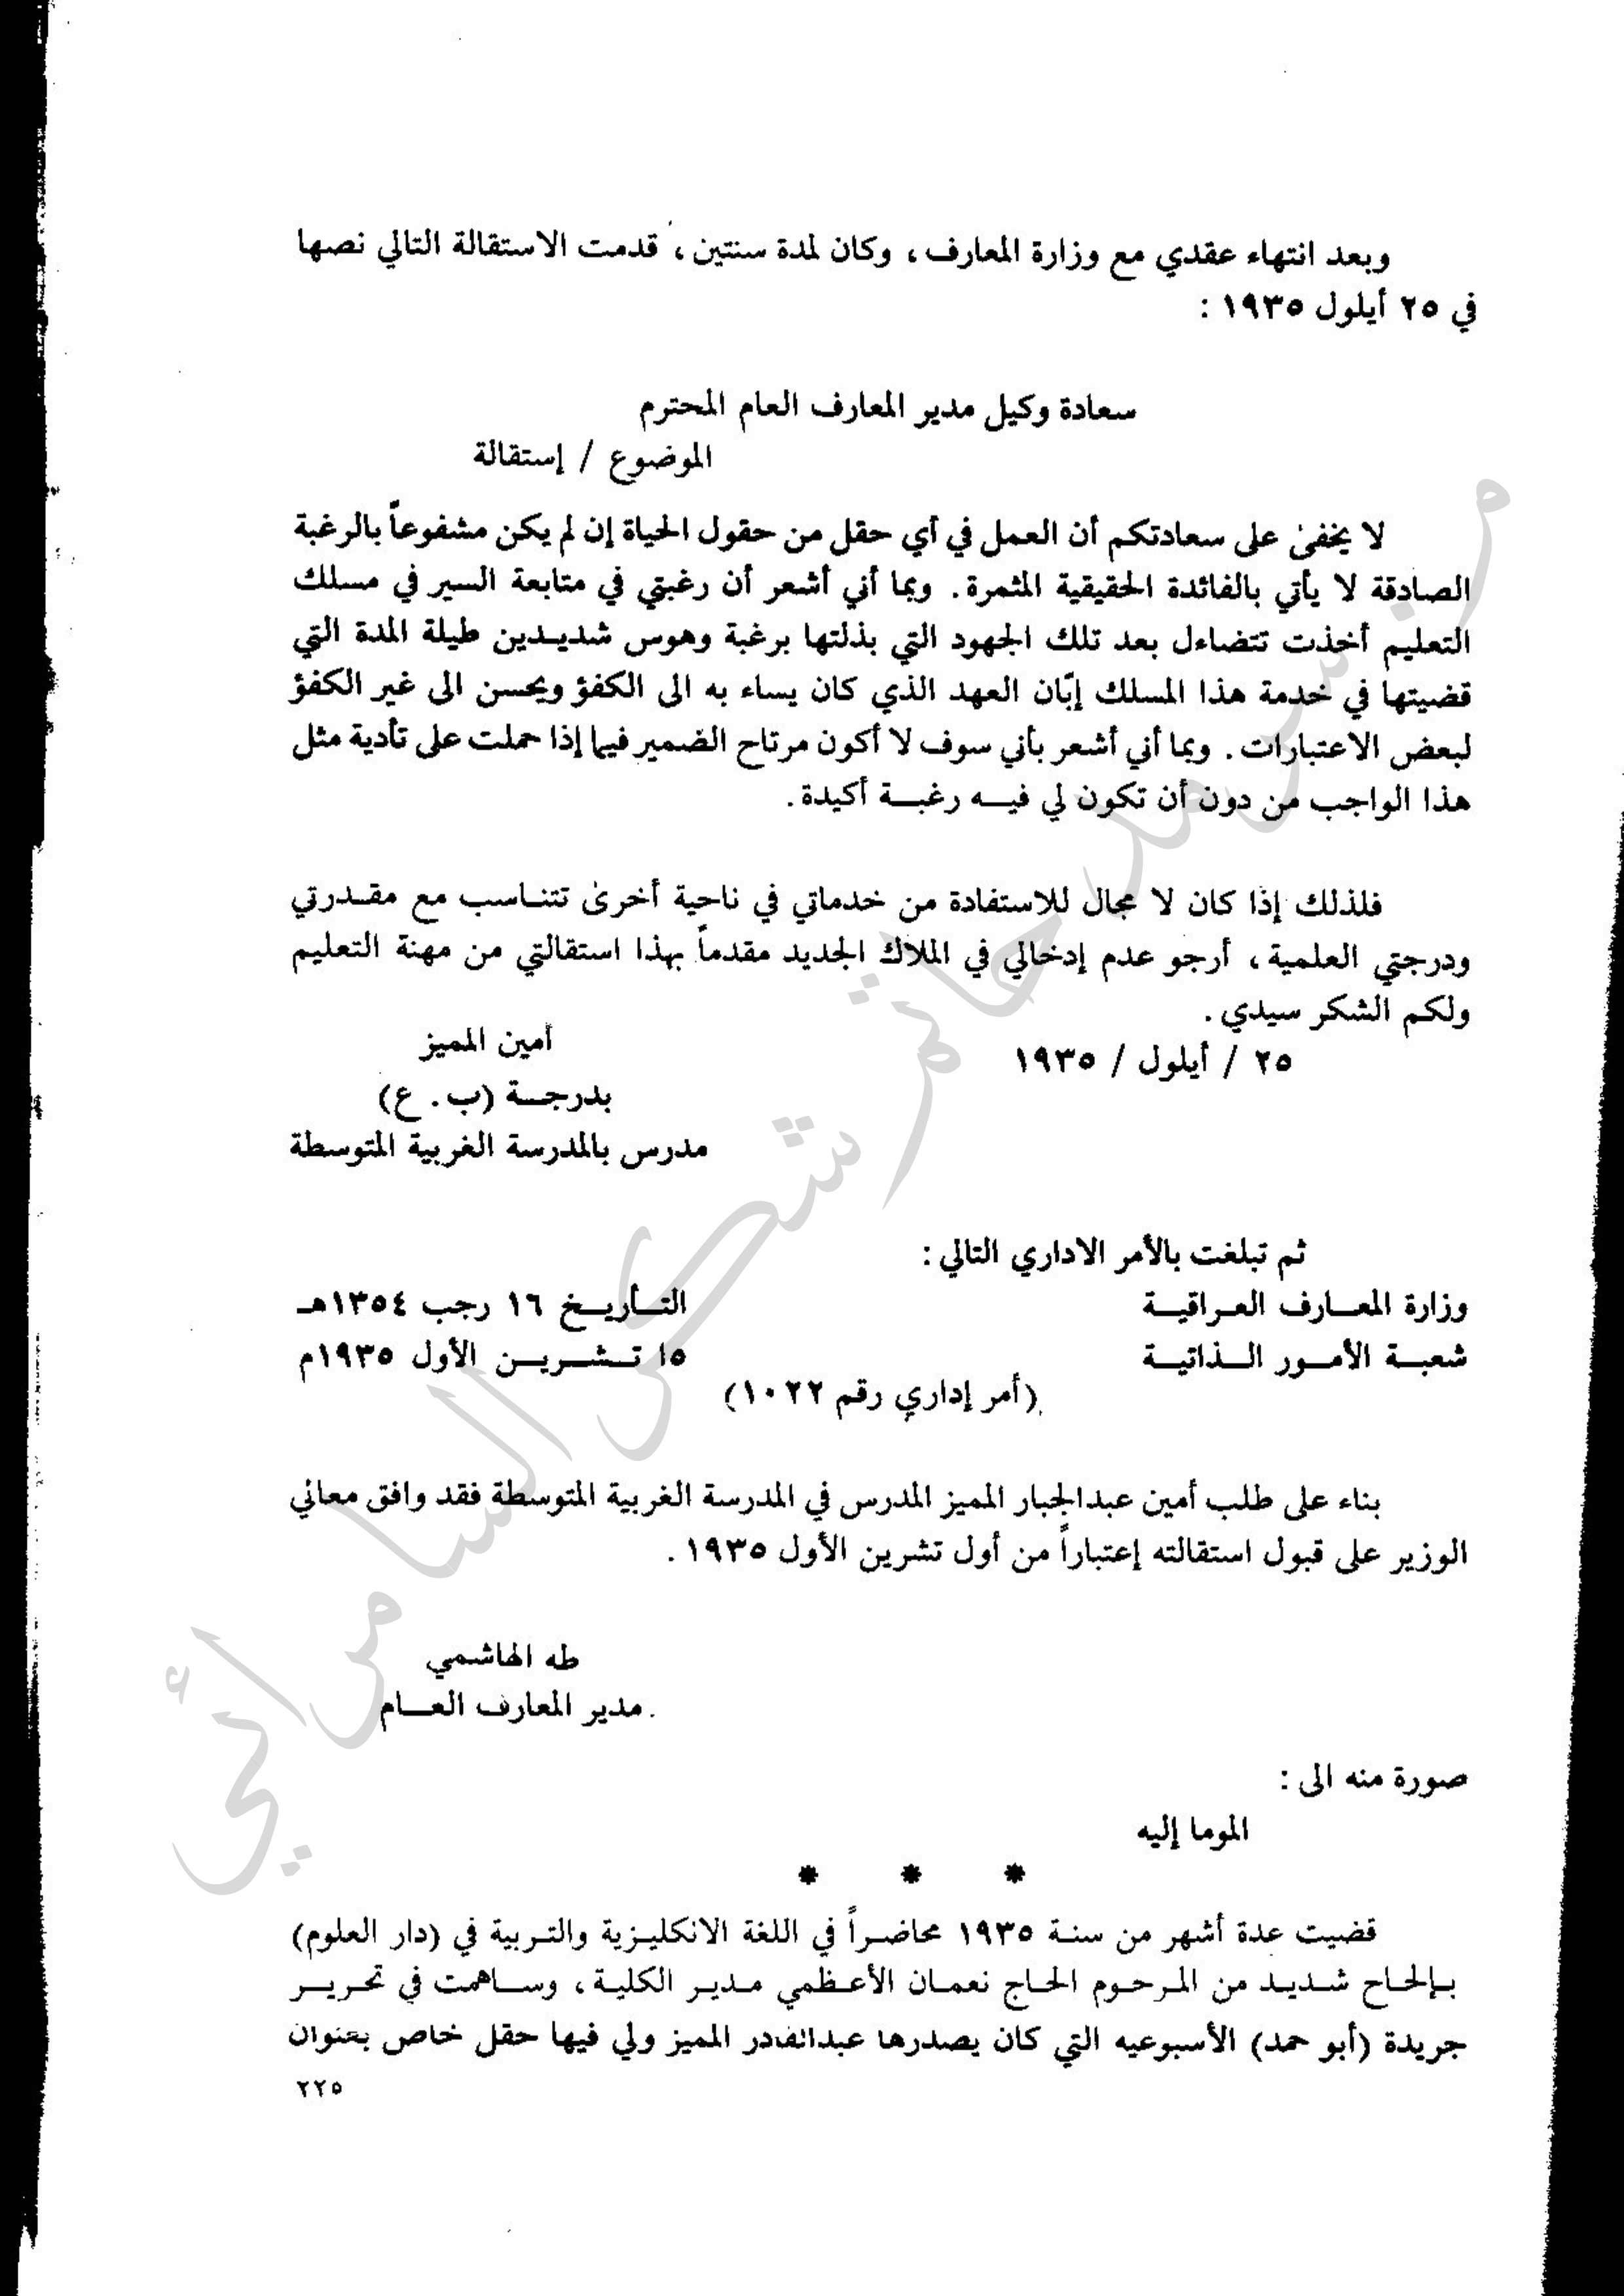 وبعد انتهاء عقدي مع وزارة المعارف ، وكان لمدة سنتين ، قدمت الاستقالة التالي نصها
في ٢٥ أيلول ١٩٣٥ :
سعادة وكيل مدير المعارف العام المحترم
الموضوع / إستقالة
لا يخفىٰ على سعادتكم أن العمل في أي حقل من حقول الحياة إن لم يكن مشفوعاً بالرغبة
الصادقة لا يأتي بالفائدة الحقيقية المثمرة . وبما أني أشعر أن رغبتي في متابعة السير في مسلك
التعليم أخذت تتضاءل بعد تلك الجهود التي بذلتها برغبة وهوس شديدين طيلة المدة التي
قضيتها في خدمة هذا المسلك إبّان العهد الذي كان يساء به الى الكفؤ ويحسن الى غير الكفؤ
لبعض الاعتبارات . وبما أني أشعر بأني سوف لا أكون مرتاح الضمير فيما إذا حملت على تأدية مثل
هذا الواجب من دون أن تكون لي فيه رغبة أكيدة .
فلذلك إذا كان لا مجال للاستفادة من خدماتي في ناحية أخرىٰ تتناسب مع مقدرتي
ودرجتي العلمية ، أرجو عدم إدخالي في الملاك الجديد مقدماً بهذا استقالتي من مهنة التعليم
ولكم الشكر سيدي .
أمين المميز
٢٥ / أيلول / ١٩٣٥
بدرجة (ب . ع)
مدرس بالمدرسة الغربية المتوسطة
ثم تبلغت بالأمر الاداري التالي :
وزارة المعارف العراقية التأريخ ١٦ رجب ١٣٥٤هـ
شعبة الأمور الذاتية ١٥ تشرين الأول ١٩٣٥م
(أمر إداري رقم ١٠٢٢)
بناء على طلب أمين عبدالجبار المميز المدرس في المدرسة الغربية المتوسطة فقد وافق معالي
الوزير على قبول استقالته إعتباراً من أول تشرين الأول ١٩٣٥ .
طه الهاشمي
مدير المعارف العام
صورة منه الى :
الموما إليه
* * *
قضيت عدة أشهر من سنة ١٩٣٥ محاضراً في اللغة الانكليزية والتربية في (دار العلوم)
بإلحاح شديد من المرحوم الحاج نعمان الأعظمي مدير الكلية ، وساهمت في تحرير
جريدة (أبو حمد) الأسبوعيه التي كان يصدرها عبدالقادر المميز ولي فيها حقل خاص بعنوان
٢٢٥
سرمد حاتم شكر السامرائي